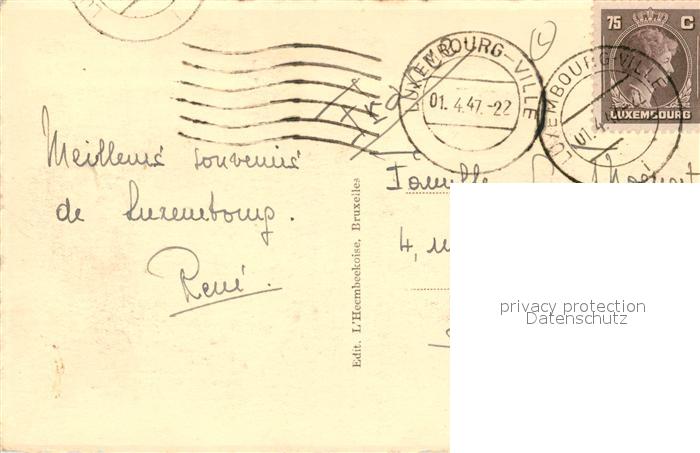 75 C
LUXEMBOURG
LUXEMBOURG-VILLE
01. 4.47.-22
LUXEMBOURG-VILLE
01.4
Meilleurs souvenirs
de Luxembourg.
René.
Famille
4,
Edit. L'Heembeekoise, Bruxelles
privacy protection
Datenschutz